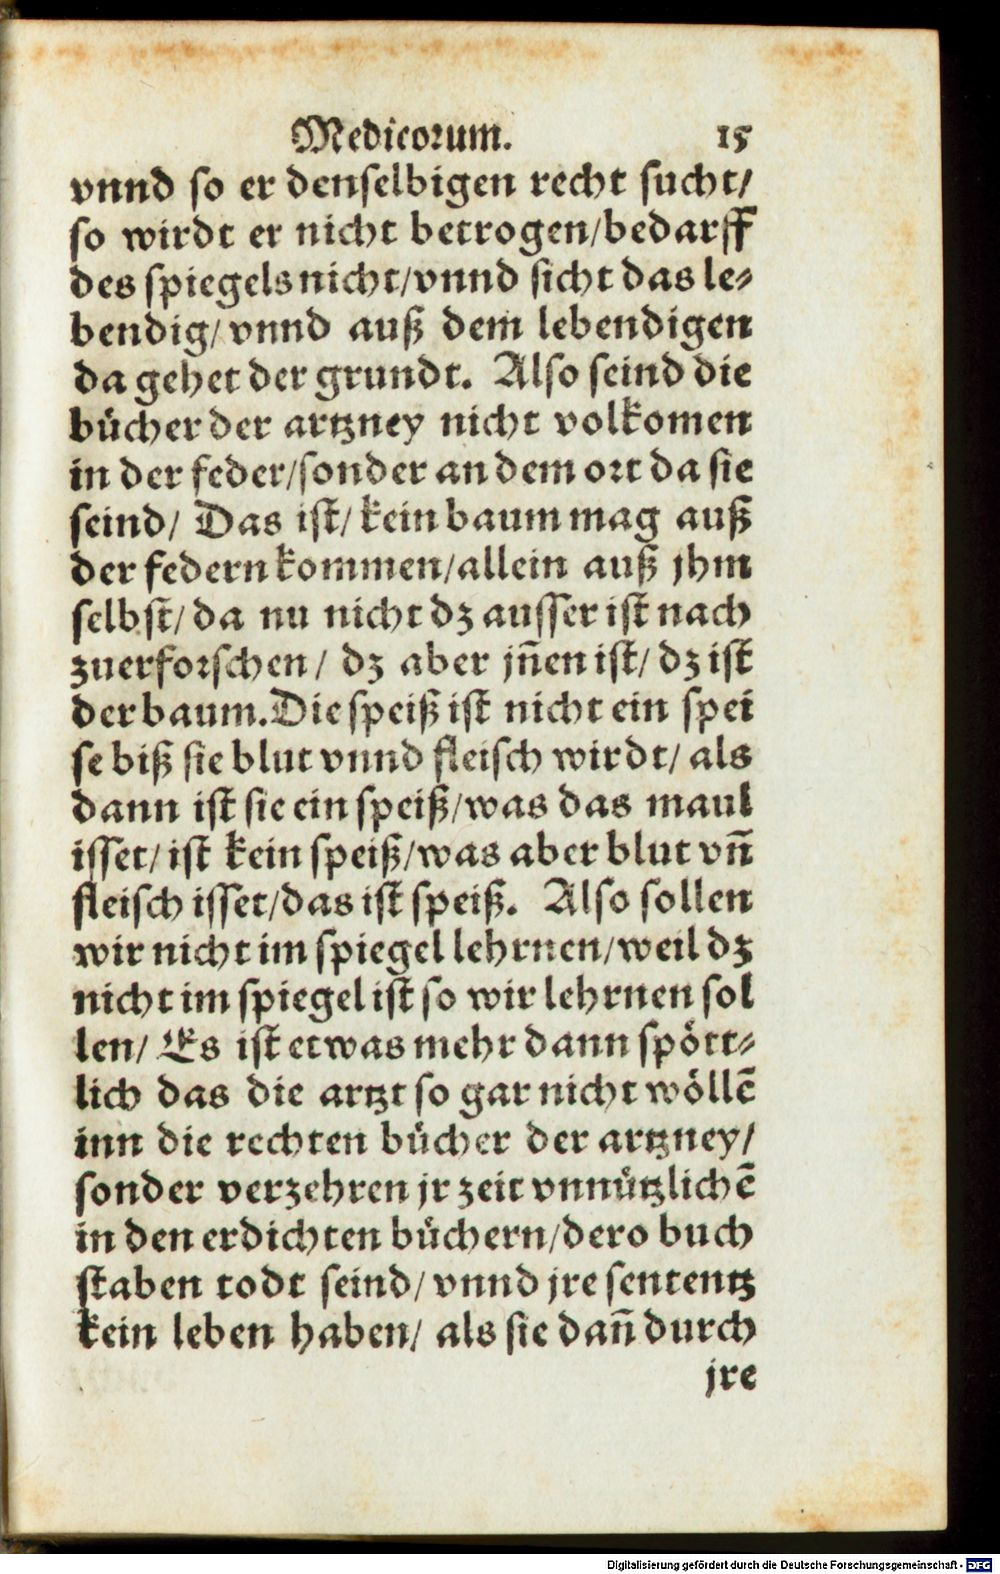 Medicorum. 15
vnnd so er denselbigen recht sucht/
so wirdt er nicht betrogen/bedarff
des spiegels nicht/vnnd sicht das le-
bendig/ vnnd auß dem lebendigen
da gehet der grundt. Also seind die
bücher der artzney nicht volkomen
in der feder/sonder an dem ort da sie
seind/ Das ist/ kein baum mag auß
der federn kommen/allein auß jhm
selbst/ da nu nicht dz ausser ist nach
zuerforschen/ dz aber jñen ist/ dz ist
der baum. Die speiß ist nicht ein spei
se biß sie blut vnnd fleisch wirdt/ als
dann ist sie ein speiß/was das maul
isset/ ist kein speiß/was aber blut vñ
fleisch isset/das ist speiß. Also sollen
wir nicht im spiegel lehrnen/weil dz
nicht im spiegel ist so wir lehrnen sol
len/ Es ist etwas mehr dann spött-
lich das die artzt so gar nicht wöllē
inn die rechten bücher der artzney/
sonder verzehren jr zeit vnnützlichē
in den erdichten büchern/dero buch
staben todt seind/ vnnd jre sententz
kein leben haben/ als sie dañ durch
jre
Digitalisierung gefördert durch die Deutsche Forschungsgemeinschaft - DFG